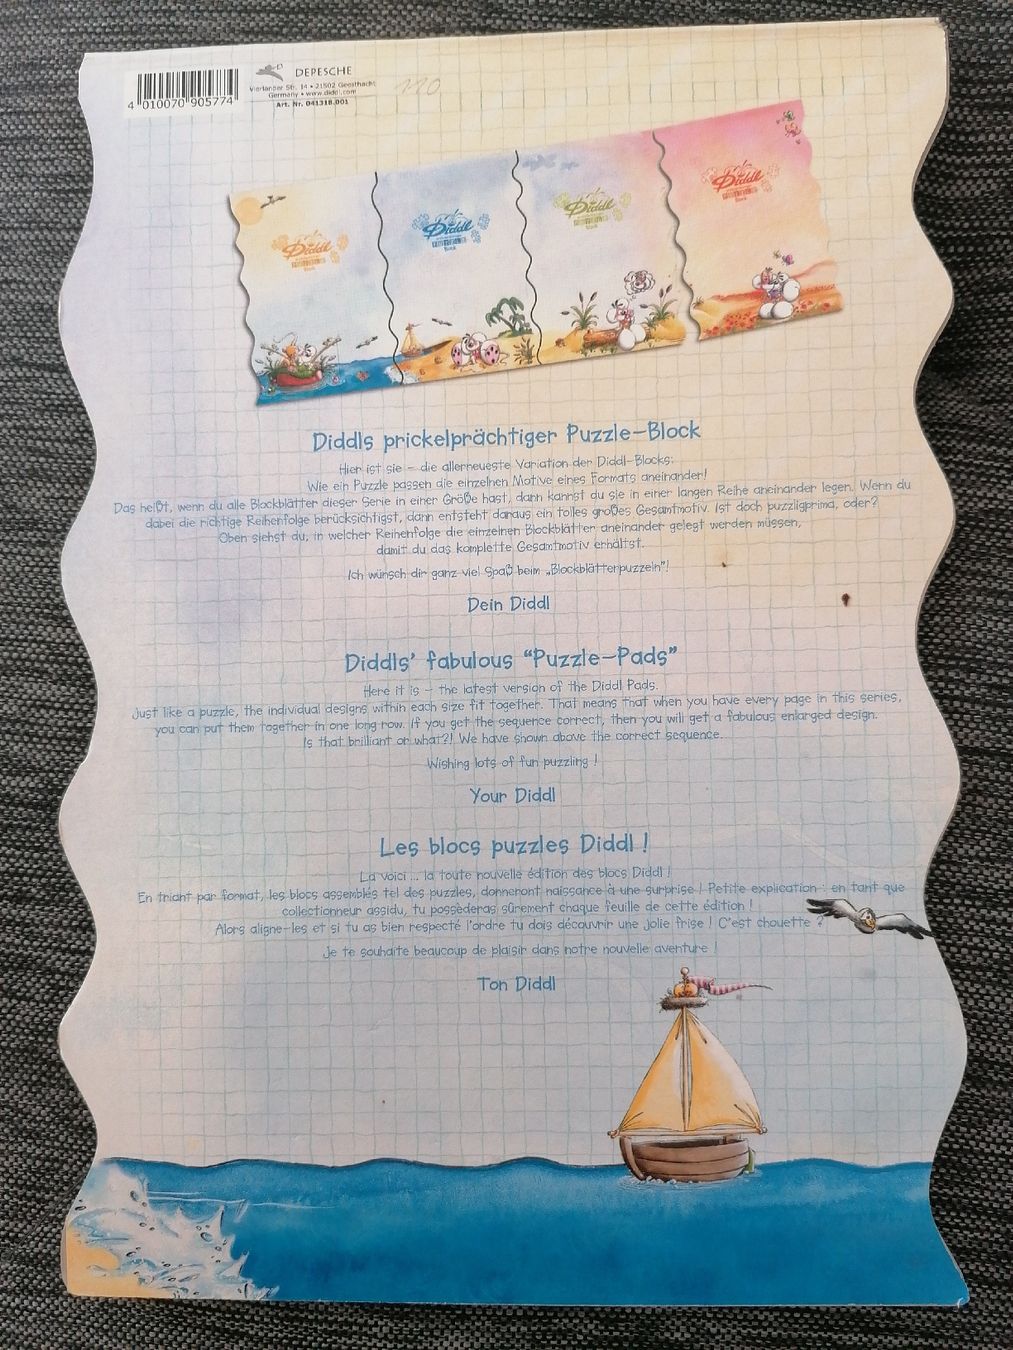 4 010070 905774
DEPESCHE
Vierlander Str. 14 • 21502 Geesthacht
Germany • www.diddl.com
Art. Nr. 041318.001
110
Diddl
Block
Diddl
Block
Diddl
Block
Diddl
Block
Diddls prickelprächtiger Puzzle-Block
Hier ist sie – die allerneueste Variation der Diddl-Blocks:
Wie ein Puzzle passen die einzelnen Motive eines Formats aneinander!
Das heißt, wenn du alle Blockblätter dieser Serie in einer Größe hast, dann kannst du sie in einer langen Reihe aneinander legen. Wenn du
dabei die richtige Reihenfolge berücksichtigst, dann entsteht daraus ein tolles großes Gesamtmotiv. Ist doch puzzligprima, oder?
Oben siehst du, in welcher Reihenfolge die einzelnen Blockblätter aneinander gelegt werden müssen,
damit du das komplette Gesamtmotiv erhältst.
Ich wünsch dir ganz viel Spaß beim „Blockblätterpuzzeln"!
Dein Diddl
Diddls' fabulous "Puzzle-Pads"
Here it is – the latest version of the Diddl Pads.
Just like a puzzle, the individual designs within each size fit together. That means that when you have every page in this series,
you can put them together in one long row. If you get the sequence correct, then you will get a fabulous enlarged design.
Is that brilliant or what?! We have shown above the correct sequence.
Wishing lots of fun puzzling !
Your Diddl
Les blocs puzzles Diddl !
La voici ... la toute nouvelle édition des blocs Diddl !
En triant par format, les blocs assemblés tel des puzzles, donneront naissance à une surprise ! Petite explication : en tant que
collectionneur assidu, tu possèderas sûrement chaque feuille de cette édition !
Alors aligne-les et si tu as bien respecté l'ordre tu dois découvrir une jolie frise ! C'est chouette ?
Je te souhaite beaucoup de plaisir dans notre nouvelle aventure !
Ton Diddl